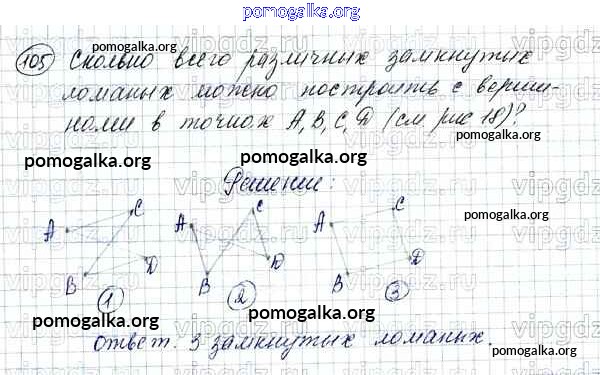 pomogalka.org
105 Сколько всего различных замкнутых
ломаных можно построить с верши-
нами в точках A, B, C, D (см рис 18)?
Решение:
A C B D
A C B D
A C B D
1 2 3
Ответ. 3 замкнутых ломаных.
pomogalka.org
pomogalka.org
pomogalka.org
pomogalka.org
pomogalka.org
pomogalka.org
pomogalka.org
pomogalka.org
pomogalka.org
vipgdz.ru